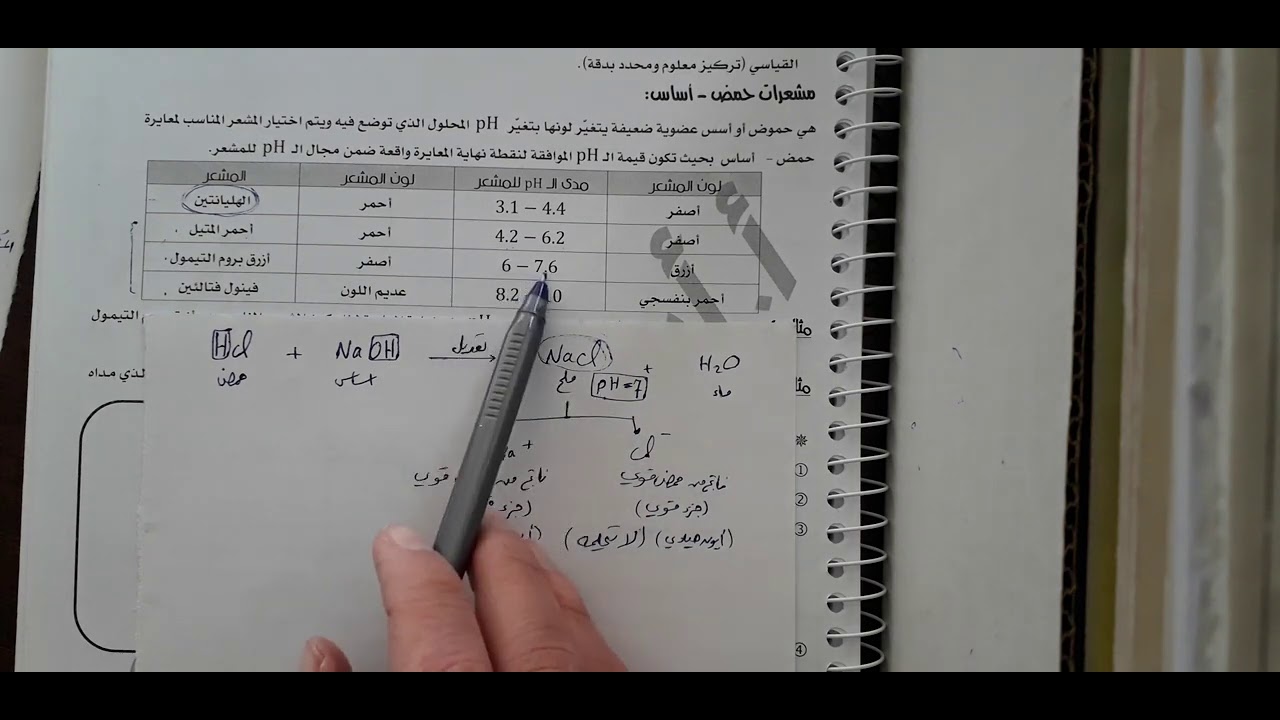 القياسي (تركيز معلوم ومحدد بدقة).
مشعرات حمض - أساس:
هي حموض أو أسس عضوية ضعيفة يتغيّر لونها بتغيّر pH المحلول الذي توضع فيه ويتم اختيار المشعر المناسب لمعايرة
حمض - أساس بحيث تكون قيمة الـ pH الموافقة لنقطة نهاية المعايرة واقعة ضمن مجال الـ pH للمشعر.
لون المشعر مدى الـ pH للمشعر لون المشعر المشعر
أصفر 3.1 – 4.4 أحمر الهليانتين
أصفر 4.2 – 6.2 أحمر أحمر المتيل
أزرق 6 – 7.6 أصفر أزرق بروم التيمول
أحمر بنفسجي 8.2 10 عديم اللون فينول فتالئين
التيمول
الذي مداه
HCl + NaOH تعديل NaCl + H₂O
حمض أساس ملح pH = 7 ماء
a⁺ Cl⁻
ناتج من قوي ناتج من حمض قوي
(جزء (جزء قوي)
(أيون حيادي) (لا تتحلمه)
①
②
③
④